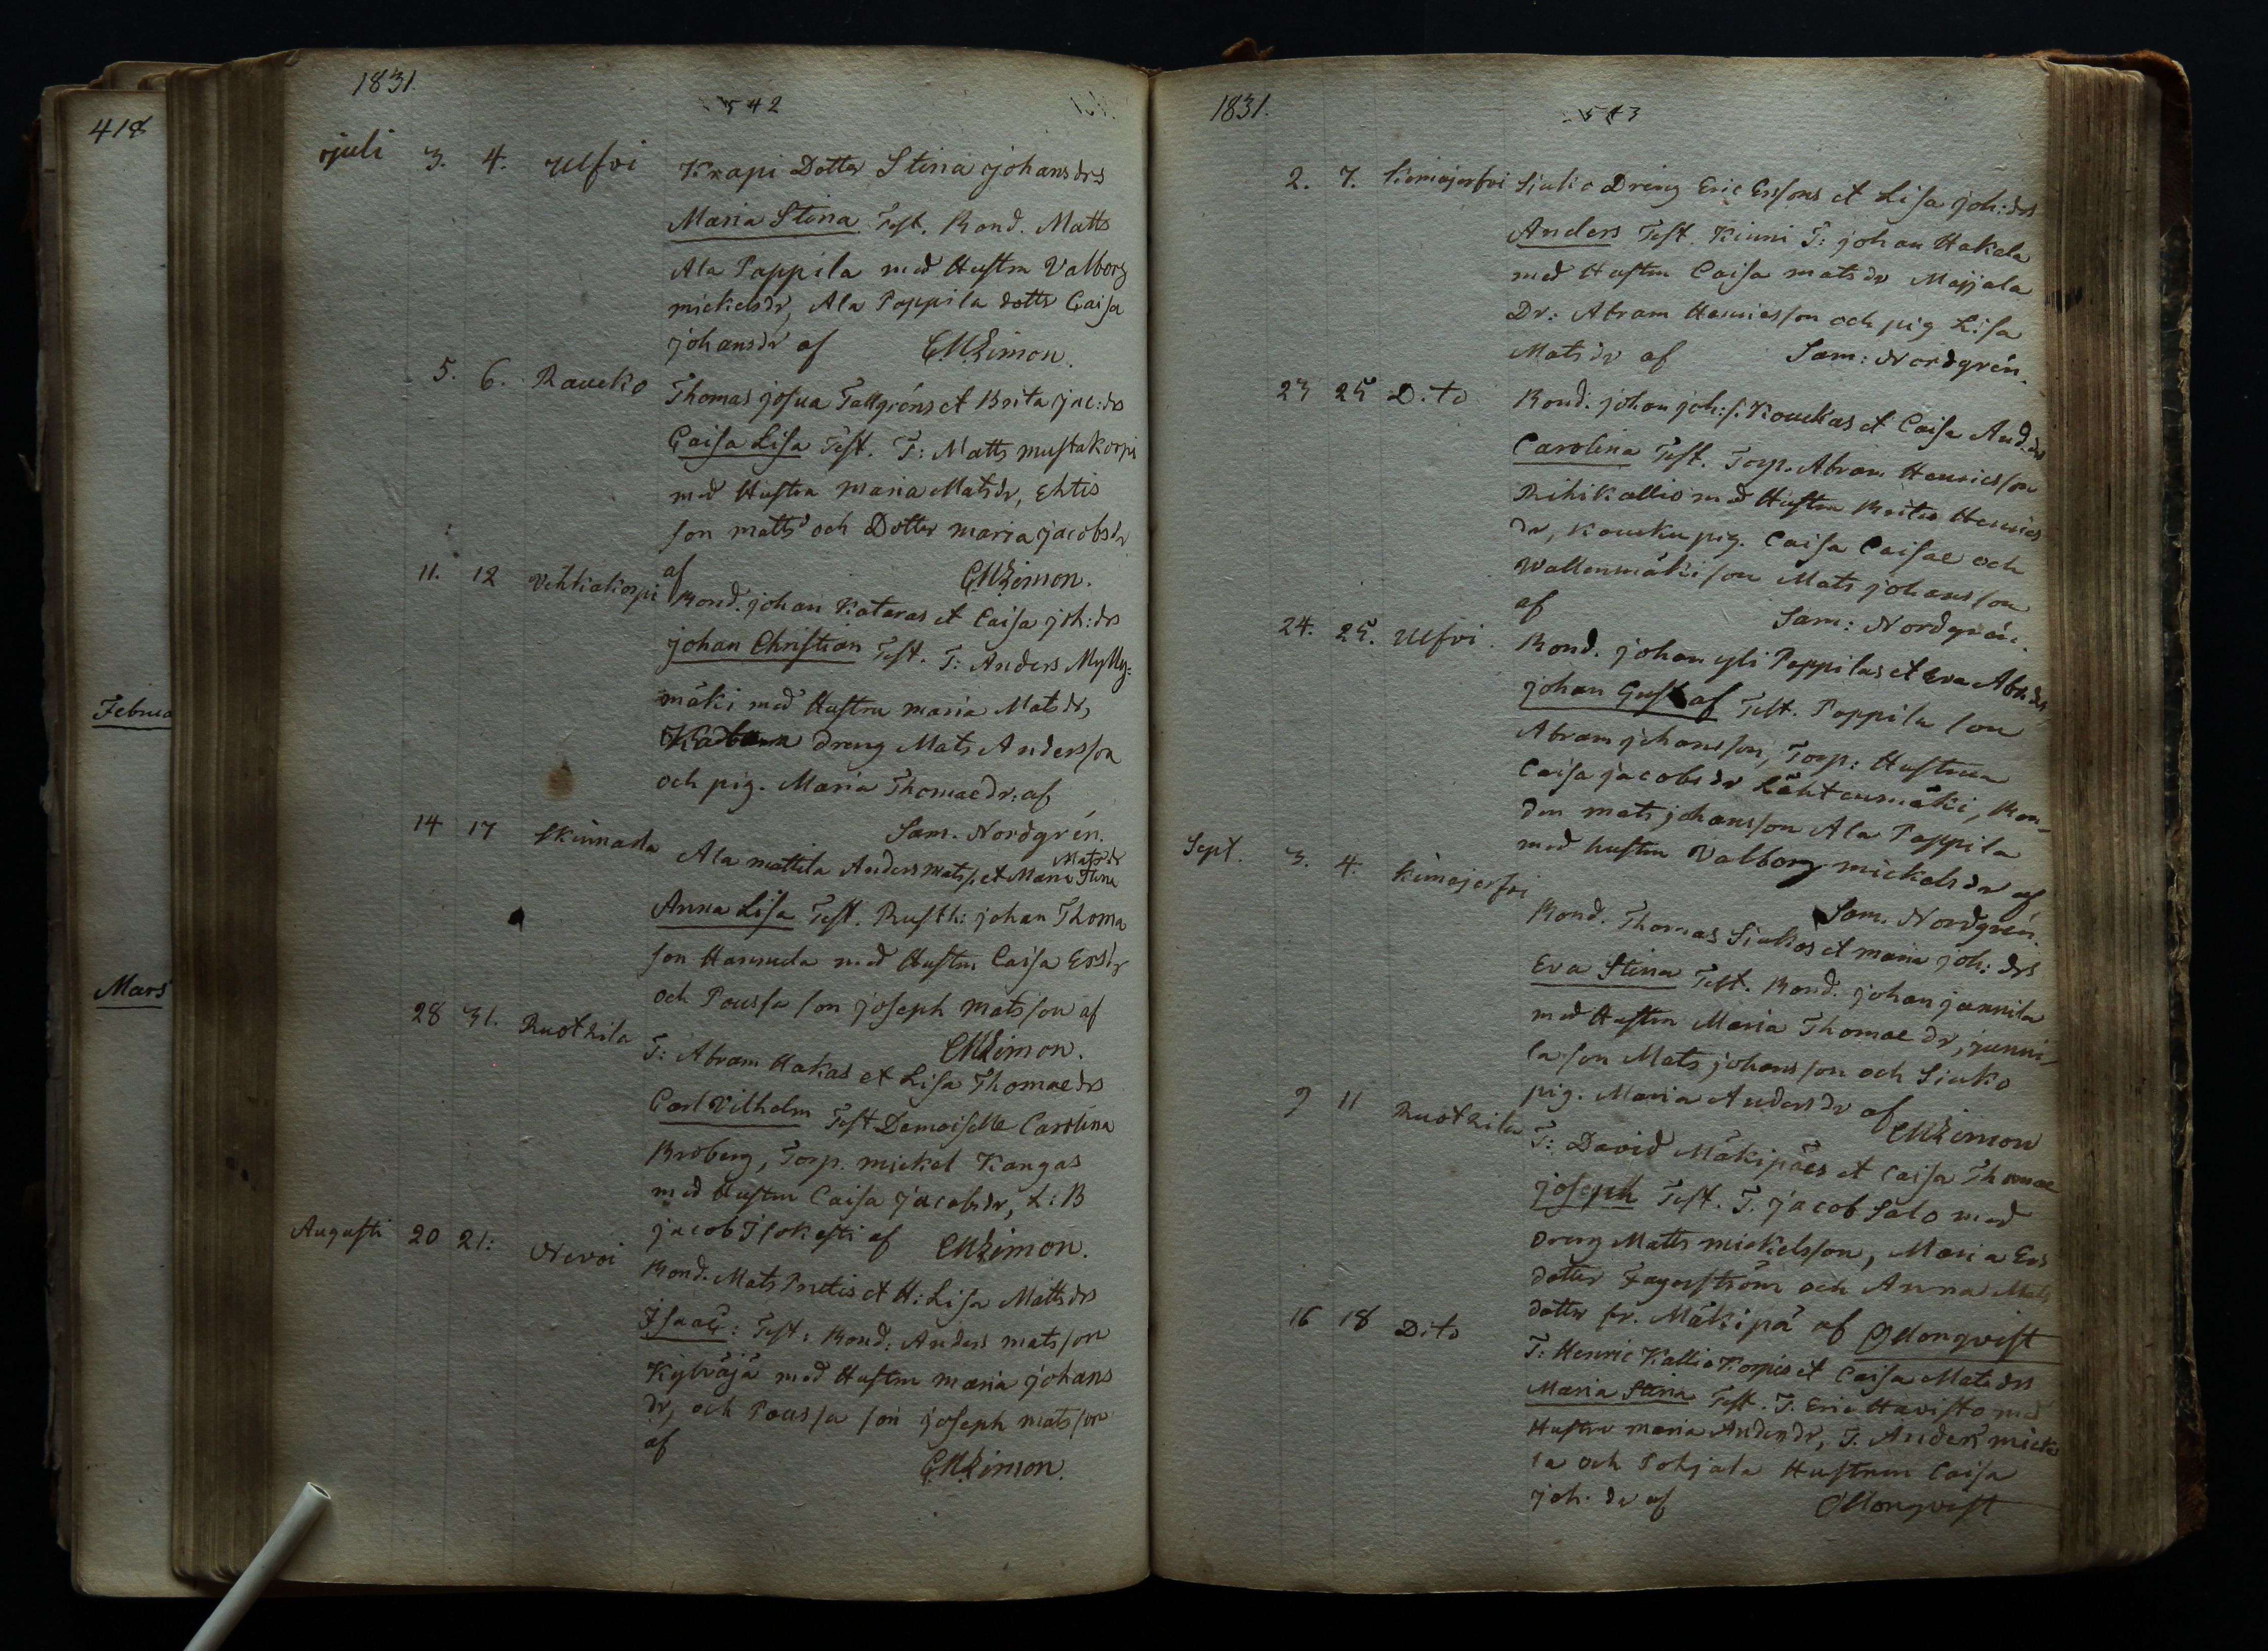 418
Februa
Mars
1831.
542
juli 3. 4. Ulfvi Krapi Dotter Stina johansdrs
Maria Stina Test. Bond. Matts
Ala Pappila med Hustru Valborg
mickelsdr, Ala Pappila dottr Caisa
johansdr af CMLimon.
5. 6. Raucko Thomas josua Tallgréns et Brita jac:drs
Caisa Lisa Test. T: Matts mustakorpi
med Hustru maria Matsdr, Ehtis
son matts och Dotter maria jacobsdr
af CMLimon.
11. 12 Vehkakorpi Bond. johan Kataras et Caisa joh:drs
johan Christian Test. T: Anders Mylly:
mäki med Hustru maria Matsdr,
dreng Mats Andersson
och pig. Maria Thomaedr: af
Sam. Nordgrén.
14 17 Skinnarla Ala mattila Anders Mats. et Maria Stina Matsdr
Anna Lisa Test. Rusth: johan Thoma
son Hannula med Hustru Caisa Ersdr
och Poussa son joseph matsson af
CMLimon.
28 31. Ruotzila T: Abram Hakas et Lisa Thomaedrs
Carl Vilhelm Test Demoiselle Carolina
Broberg, Torp. mickel Kangas
med Hustru Caisa jacobsdr, L:B
jacob Isokesti af CMLimon.
Augusti 20 21: Nervoi Bond. Mats Prutis et H: Lisa Mattsdrs
Isaac: Test: Bond: Anders matsson
Kylväjä med Hustru maria johans
dr, och Poussa son joseph matsson
af
CMLimon.
1831.
543
2. 7. Kiimajerfvi Siuko Dreng Eric Erssons et Lisa joh:drs
Anders Test. Kinni T: johan Hakala
med Hustru Caisa matsdr Majjala
Dr: Abram Henricsson och pig Lisa
Matsdr af Sam: Nordgrén.
23 25 Dito Bond. johan joh:s. Kouckas et Caisa And.drs
Carolina Test. Torp. Abram Henricsson
Rihikallio med Hustru Brita Henrics
dr, Koucku pig. Caisa Caisae och
Wallenmäki son Mats johansson
af Sam: Nordgrén.
24. 25. Ulfvi. Bond. johan yli Pappilas et Eva Abr.drs
johan Gustaf Test. Pappila son
Abram johansson, Torp: Hustrun
Caisa jacobsdr Lähteenmäki, Bon-
den mats johansson Ala Pappila
med hustru Valborg mickelsdr af
Sam. Nordgrén.
Sept. 3. 4. Kimajerfvi Bond. Thomas Siukos et maria joh: drs
Eva Stina Test. Bond. johan junnila
med Hustru Maria Thomae dr, junni-
la son Mats johansson och Siuko
pig. Maria Andersdr af CMLimon
9 11 Ruotzila T: David Mäkipäes et Caisa Thomae
joseph Test. T. jacob Salo med
dreng Matts mickelsson, Maria Ers
dotter Fagerström och Anna Mats
dotter fr. Mäkipä af CMongvist
16 18 Dito T: Henric Kalliokorpis et Caisa Matsdrs
Maria Stina Test. T. Eric Havisto med
Hustru maria Andersdr, T. Anders micke
la och Pohjala Hustrun Caisa
joh. dr af CMongvist